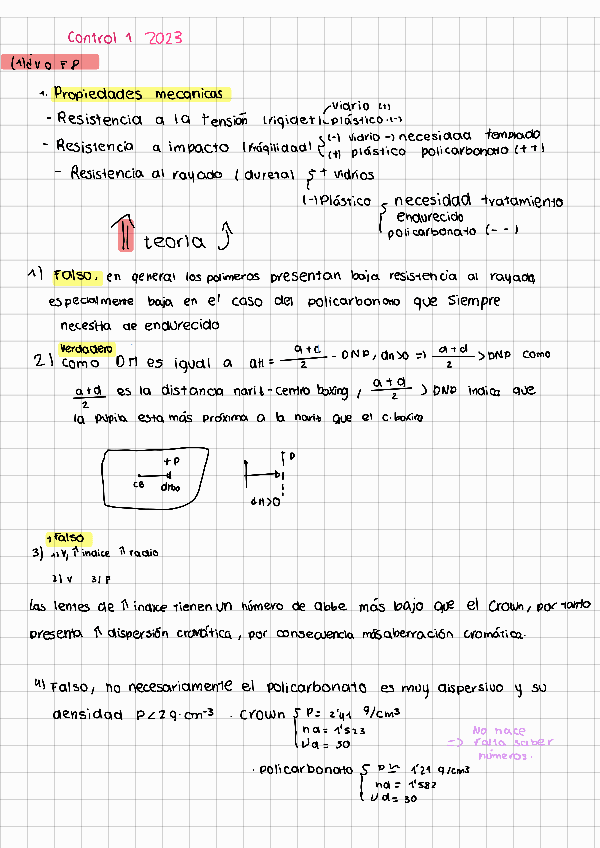 Control 1 2023
(1)ºV o F P
1. Propiedades mecanicas
- Resistencia a la tensión (rigidez) vidrio (+)
plástico (-)
- Resistencia a impacto (fragilidad) (-) vidrio -) necesidad templado
(+) plástico policarbonato (++)
- Resistencia al rayado (dureza) + vidrios
(-) Plástico - necesidad tratamiento
endurecido
policarbonato (- -)
teoria
1) Falso, en general los polimeros presentan baja resistencia al rayado,
especialmente baja en el caso del policarbonato que siempre
necesita de endurecido
Verdadero
2) Como DH es igual a dH = a+c/2 - DNP, dn>0 => a+d/2 > DNP como
a+d/2 es la distancia nariz-centro boxing, a+d/2 > DNP indica que
la pupila esta más próxima a la nariz que el c.boxing
+P
CB
P
dH>0
1 Falso
3) 1) V, ↑ indice ↑ radio
2) V 3) P
Las lentes de ↑ indice tienen un número de abbe más bajo que el Crown, por tanto
presenta ↑ dispersión cromática, por consecuencia más aberración cromática.
4) Falso, no necesariamente el policarbonato es muy dispersivo y su
densidad P<2g·cm-3. Crown P= 2'41 g/cm3
nd = 1'523
Vd = 50
No hace
-> falta saber
números.
· policarbonato P ≃ 1'21 g/cm3
nd = 1'582
Vd = 30